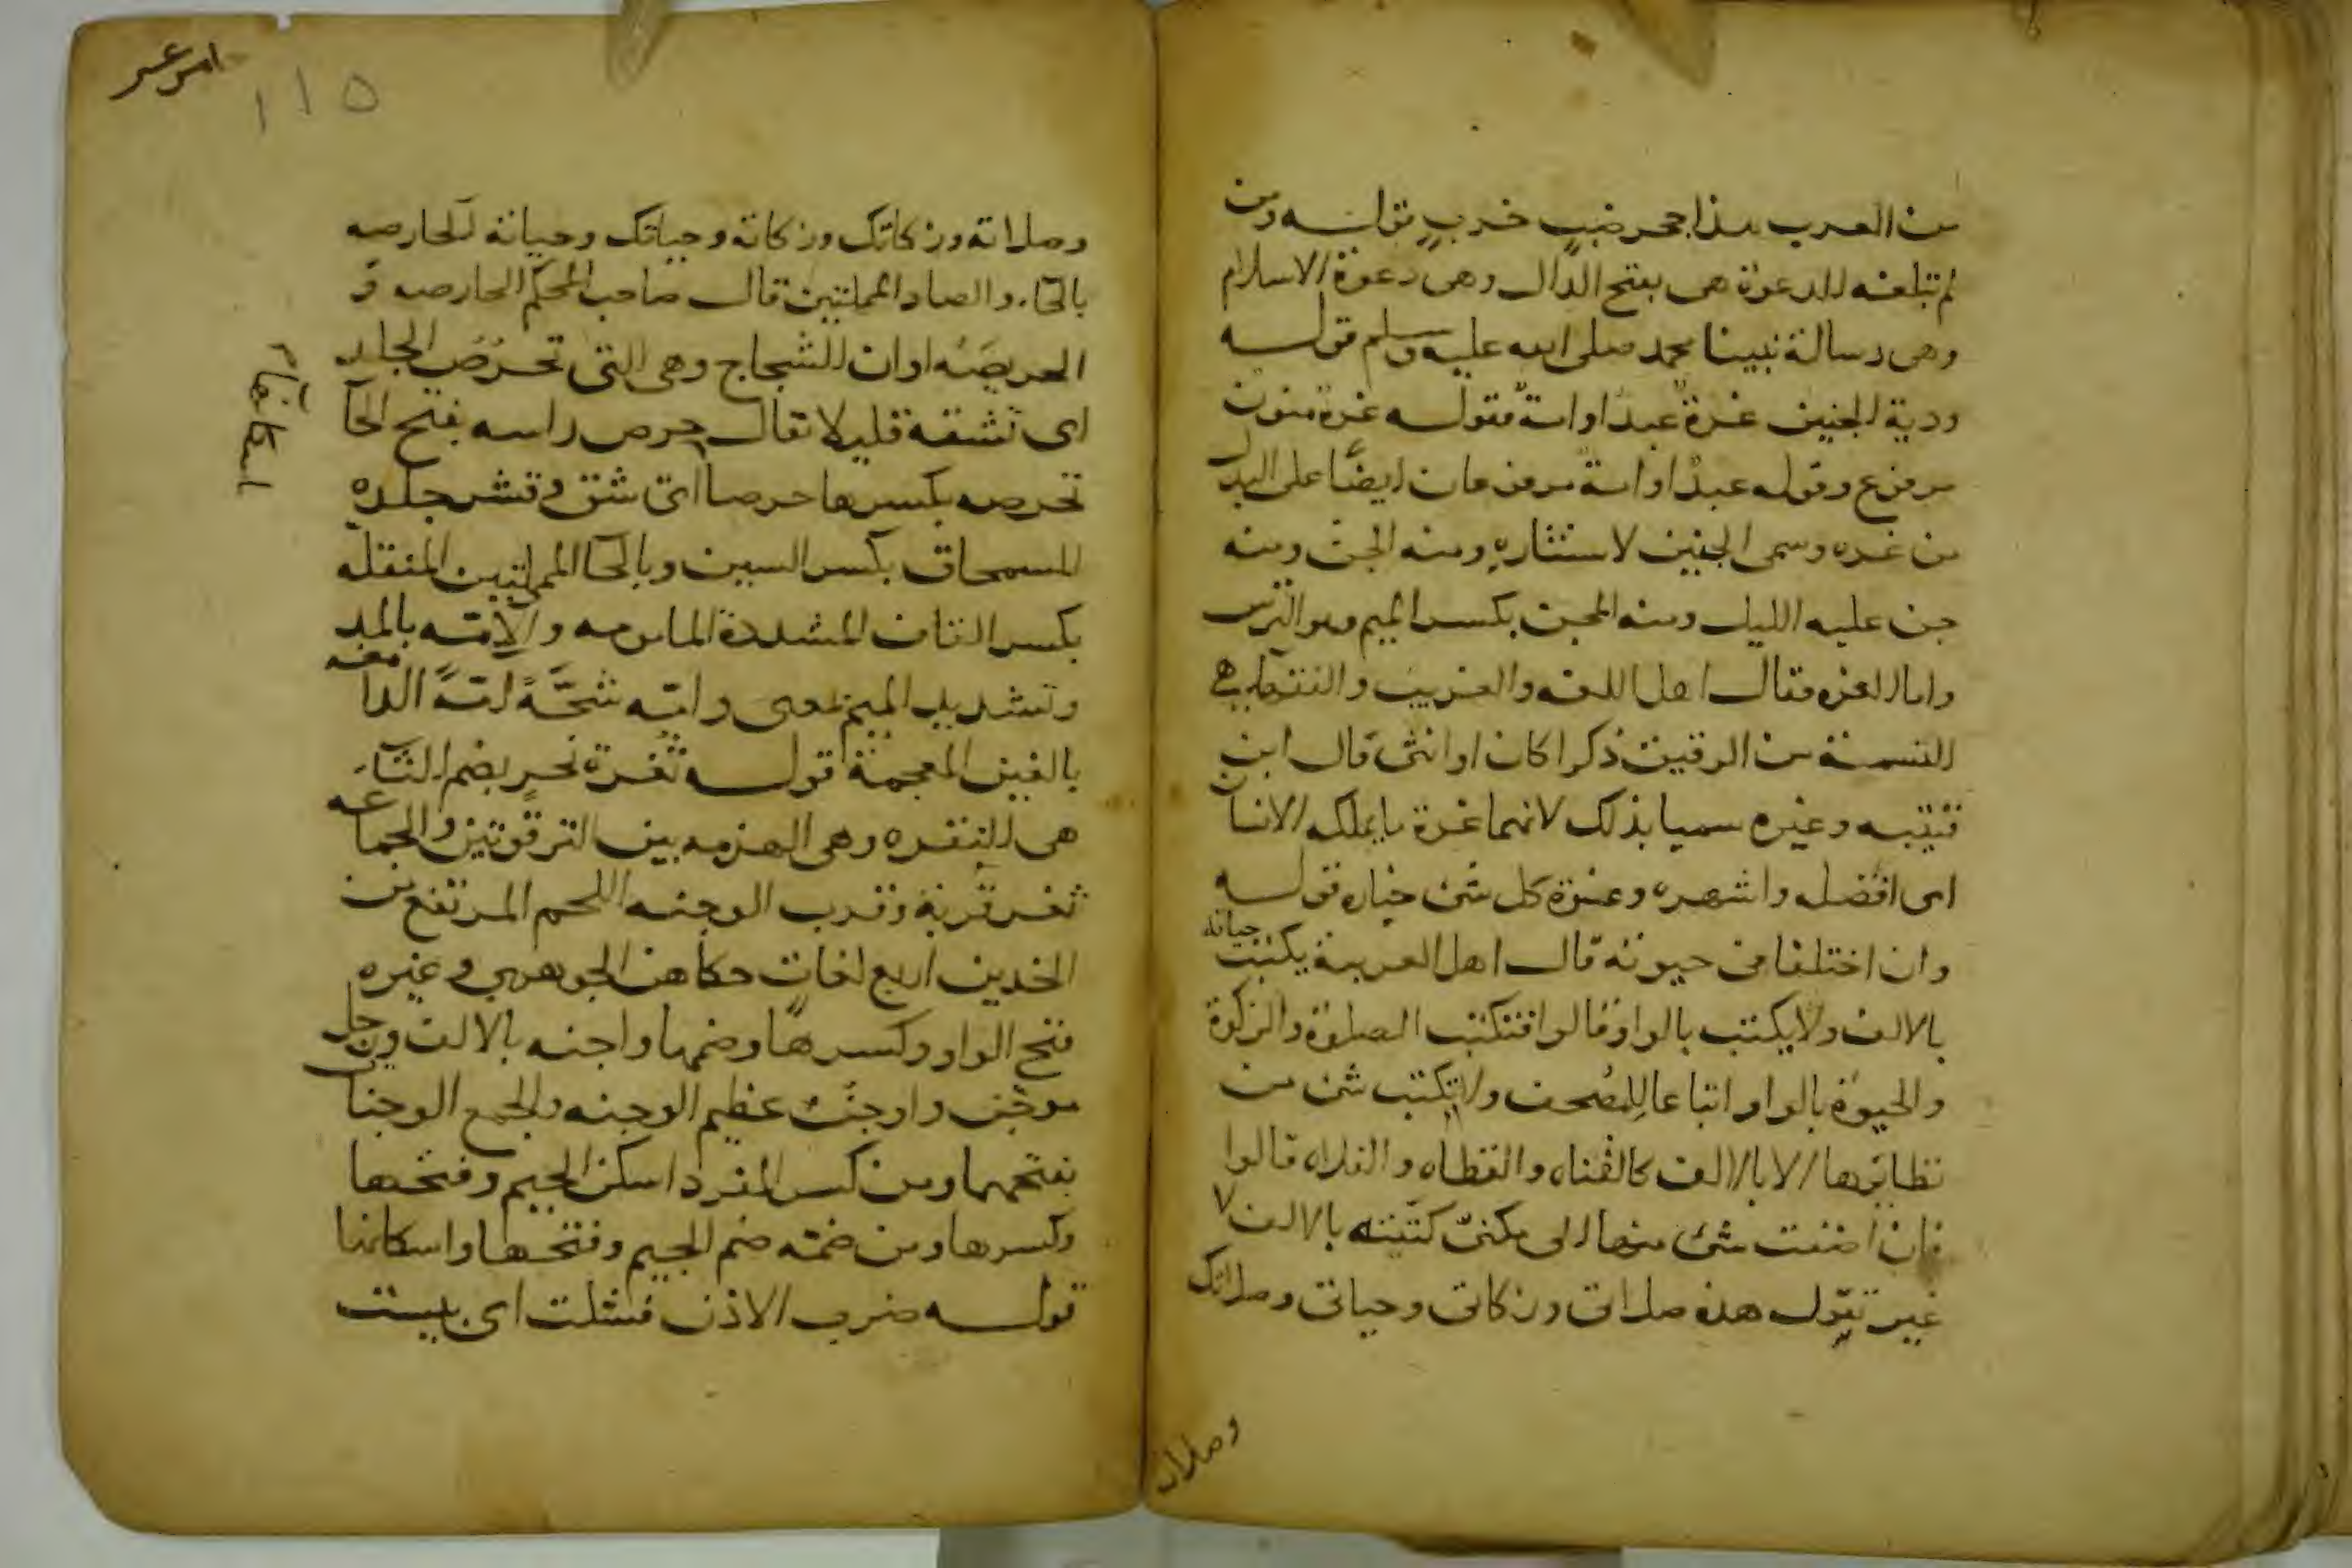 من العرب هذا جحر ضبٍ خربٍ قوله ومن
لم تبلغه الدعوة هي بفتح الدال وهي دعوة الاسلام
وهي رسالة نبينا محمد صلى الله عليه وسلم قوله
ودية الجنين غرة عبد او امة فقوله غرة منون
مرفوع وقوله عبد او امة مرفوعان ايضا على البدل
من غره وسمى الجنين لاستتاره ومنه الجن ومنه
جن عليه الليل ومنه المجن بكسر الميم وهو الترس
واما الغره فقال اهل اللغه والغريب والفقهاء هي
النسمة من الرقيق ذكرا كان او انثى قال ابن
قتيبه وغيره سميا بذلك لانهما غرة ما يملكه الانسان
اى افضله واشهره وغرة كل شئ خياره قوله
وان اختلفا في حيوته قال اهل العربية يكتب حياته
بالالف ولا يكتب بالواو قالوا فتكتب الصلوة والزكوة
والحيوة بالواو اتباعا للمصحف ولا يكتب شئ من
نظايرها الا بالالف كالقناه والقطاه والفلاه قالوا
فان اضفت شئ منها الى مكنى كتبته بالالف لا
غير تقول هذه صلاتى وزكاتى وحياتى وصلاتك
وصلاته
امر عمر
١١٥
وصلاته وزكاتك وزكاته وحياتك وحياته الحارصه
بالحاء والصاد المهملتين قال صاحب المحكم الحارصه و
الحريصه اول الشجاج وهي التى تحرص الجلد
اى تشقه قليلا يقال حرص راسه بفتح الحآ
تحرصه بكسرها حرصا اى شق وقشر جلده
السمحاق بكسر السين وبالحا المهملتين المنقله
بكسر القاف المشددة المامومه والآمة بالمد
وتشديد الميم بمعنى وامه شجه امه الدامغه
بالغين المعجمة قوله ثغرة نحر بضم الثاء
هي النقره وهي الهزمه بين الترقوتين والجماعه
ثغر قربة وقرب الوجنه اللحم المرتفع من
الخدين اربع لغات حكاهن الجوهري وغيره
فتح الواو وكسرها وضمها واجنه بالالف ورجل
موجن واوجن عظيم الوجنه والجمع الوجنات
بفتحهما ومن كسر المفرد اسكن الجيم وفتحها
وكسرها ومن ضمه ضم الجيم وفتحها واسكانها
قوله ضرب الاذن فشلت اى يبست